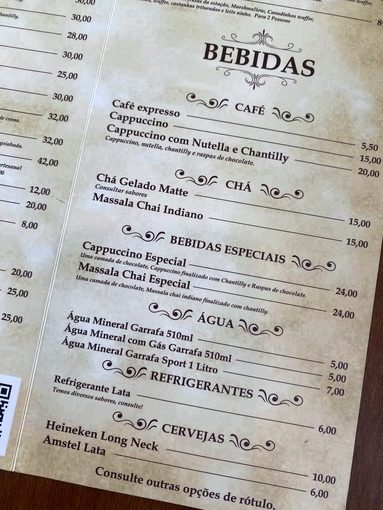 da estação, Marshmallow, Canudinhos waffer,
waffer, castanhas trituradas e leite ninho. Para 2 Pessoas
30,00
28,00
30,00
30,00
32,00
32,00
42,00
12,00
20,00
8,00
20,00
25,00
25,00
BEBIDAS
CAFÉ
Café expresso 5,50
Cappuccino 15,00
Cappuccino com Nutella e Chantilly 20,00
Cappuccino, nutella, chantilly e raspas de chocolate.
CHÁ
Chá Gelado Matte 15,00
Consultar sabores
Massala Chai Indiano 15,00
BEBIDAS ESPECIAIS
Cappuccino Especial 24,00
Uma camada de chocolate, Cappuccino finalizado com Chantilly e Raspas de chocolate.
Massala Chai Especial 24,00
Uma camada de chocolate, Massala chai indiano finalizado com chantilly.
ÁGUA
Água Mineral Garrafa 510ml 5,00
Água Mineral com Gás Garrafa 510ml 5,00
Água Mineral Garrafa Sport 1 Litro 7,00
REFRIGERANTES
Refrigerante Lata 6,00
Temos diversos sabores, consulte!
CERVEJAS
Heineken Long Neck 10,00
Amstel Lata 6,00
Consulte outras opções de rótulo.